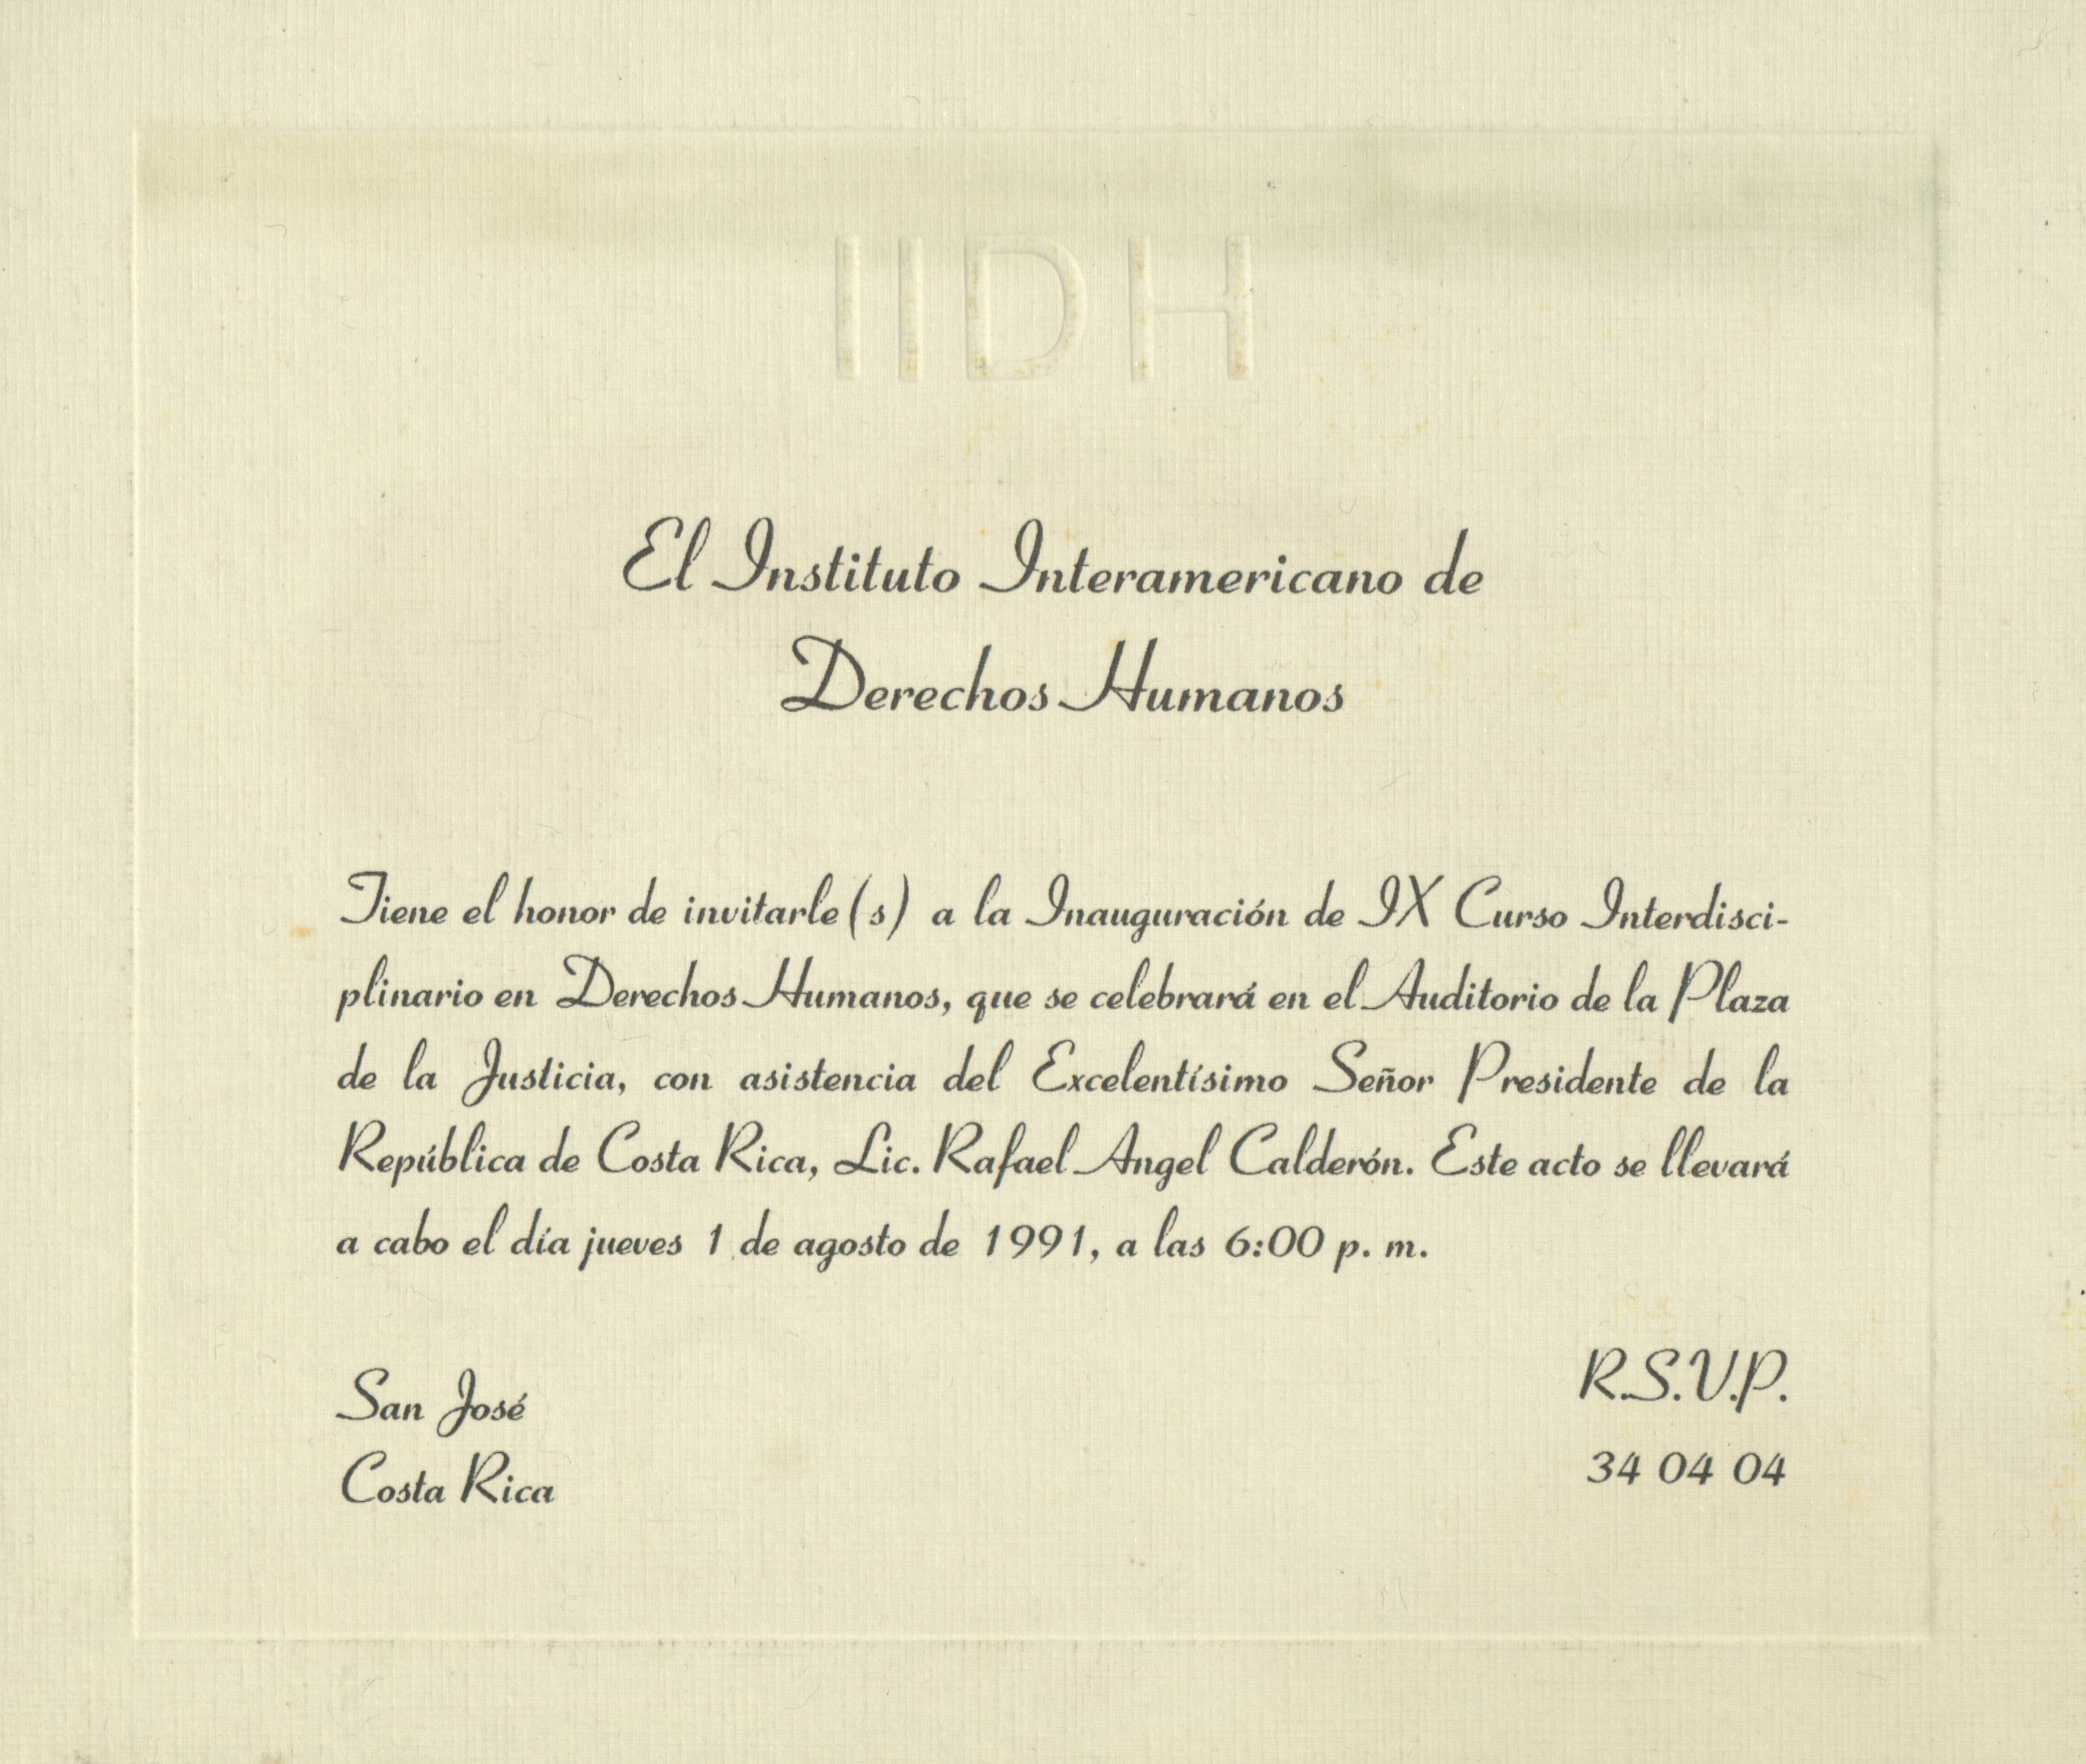 IIDH
El Instituto Interamericano de
Derechos Humanos
Tiene el honor de invitarle(s) a la Inauguración de IX Curso Interdisci-
plinario en Derechos Humanos, que se celebrará en el Auditorio de la Plaza
de la Justicia, con asistencia del Excelentísimo Señor Presidente de la
República de Costa Rica, Lic. Rafael Angel Calderón. Este acto se llevará
a cabo el día jueves 1 de agosto de 1991, a las 6:00 p. m.
San José
Costa Rica
R.S.V.P.
34 04 04